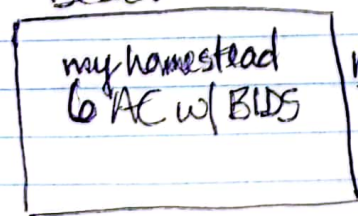 my homestead
6 AC w/ BLDS